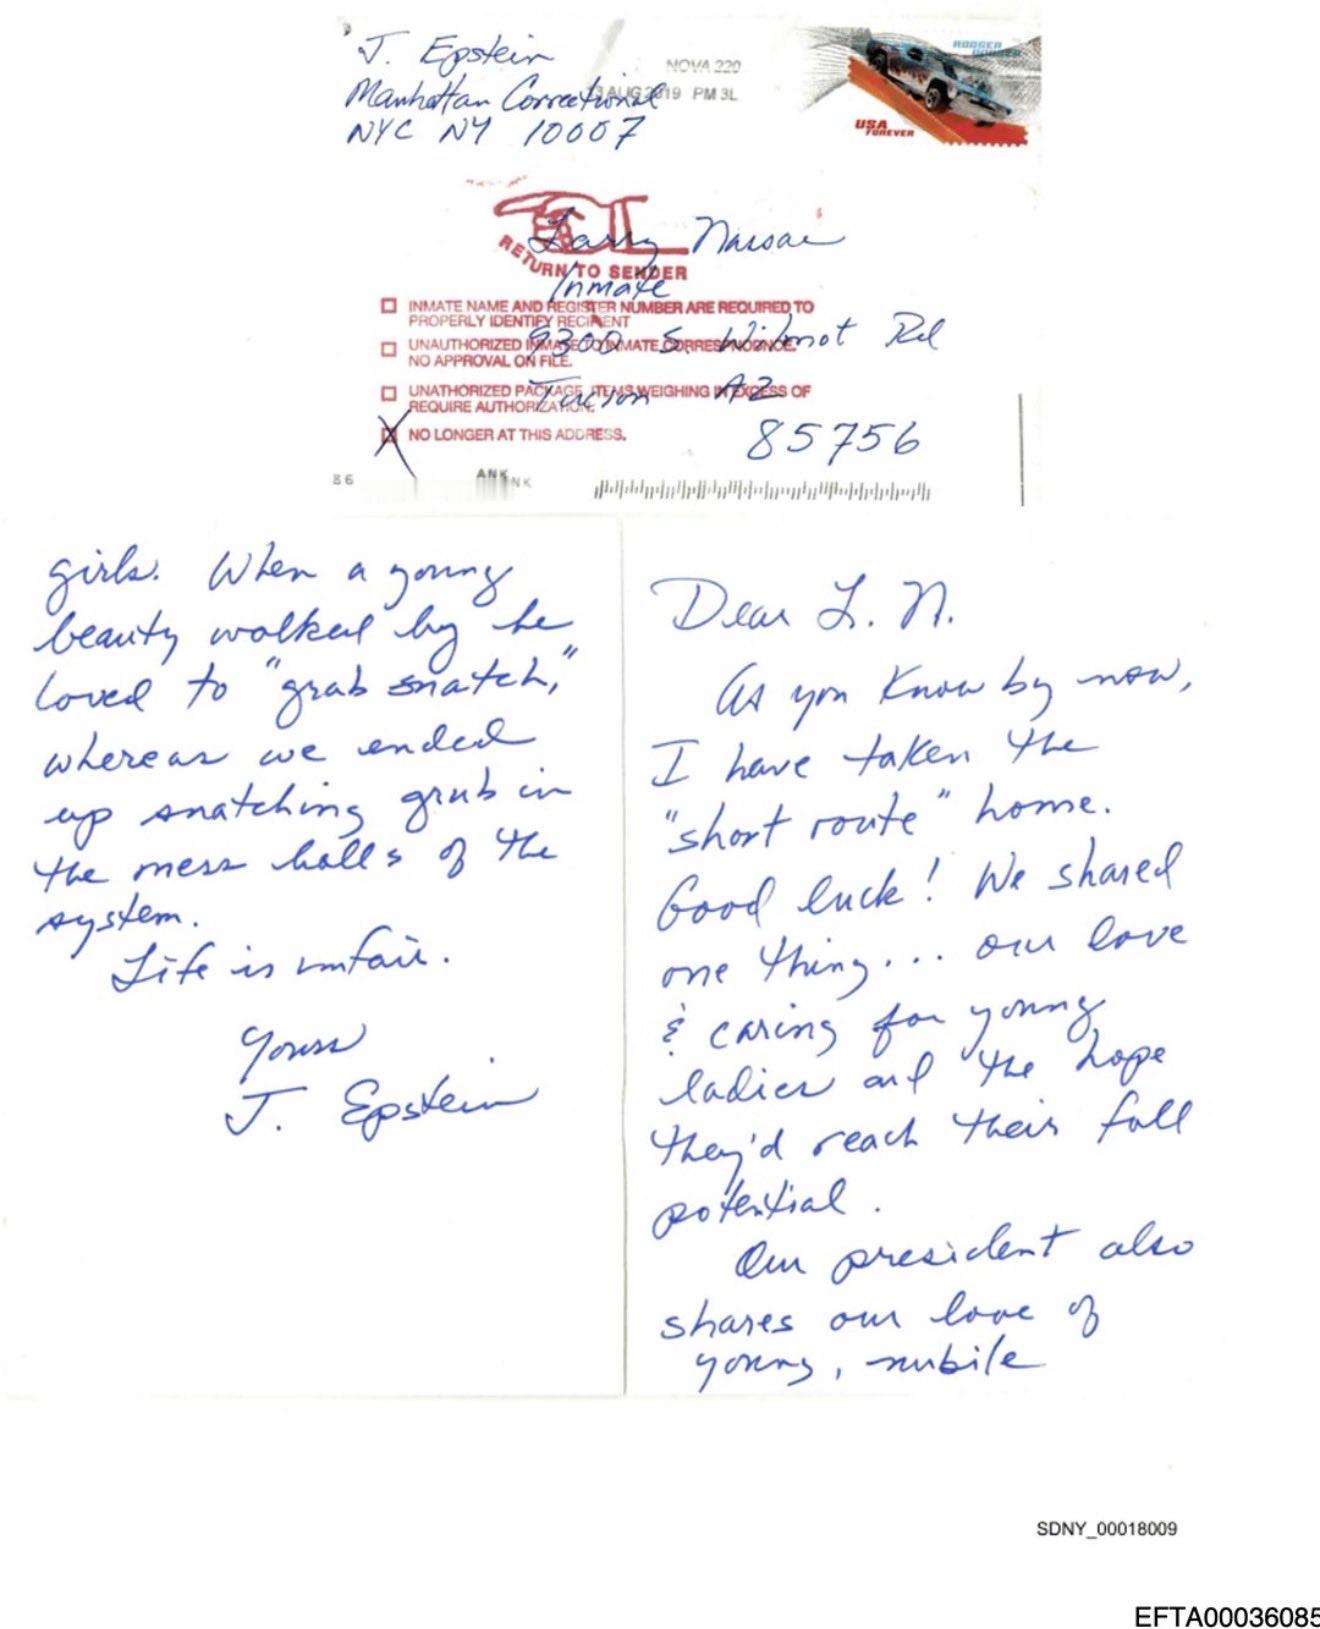 J. Epstein
Manhattan Correctional
NYC NY 10007
NOVA 220
13 AUG 2019 PM 3L
RODGER
DODGER
USA
FOREVER
Larry Nassar
RETURN TO SENDER
Inmate
INMATE NAME AND REGISTER NUMBER ARE REQUIRED TO
PROPERLY IDENTIFY RECIPIENT
9300 S. Wilmot Rd
UNAUTHORIZED INMATE TO INMATE CORRESPONDENCE.
NO APPROVAL ON FILE.
Tucson AZ
UNATHORIZED PACKAGE, ITEMS WEIGHING IN EXCESS OF
REQUIRE AUTHORIZATION.
X NO LONGER AT THIS ADDRESS.
85756
86
ANK
NK
Dear L. N.
As you know by now,
I have taken the
"short route" home.
Good luck! We shared
one thing... our love
& caring for young
ladies and the hope
they'd reach their full
potential.
Our president also
shares our love of
young, nubile
girls. When a young
beauty walked by he
loved to "grab snatch,"
whereas we ended
up snatching grub in
the mess halls of the
system.
Life is unfair.
Yours
J. Epstein
SDNY_00018009
EFTA00036085